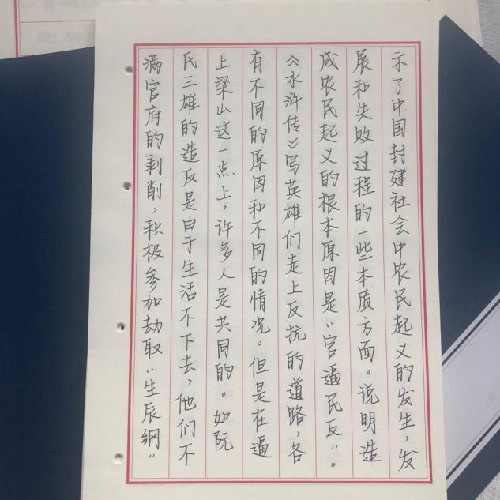 示了中国封建社会中农民起义的发生，发
展和失败过程的一些本质方面。说明造
成农民起义的根本原因是“官逼民反”。
《水浒传》写英雄们走上反抗的道路，各
有不同的原因和不同的情况。但是在逼
上梁山这一点上，许多人是共同的。如阮
氏三雄的造反是由于生活不下去，他们不
满官府的剥削，积极参加劫取“生辰纲”